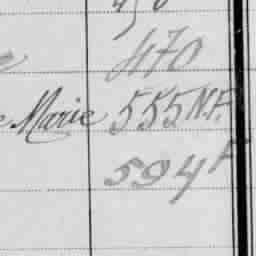 470
Marie 555 N.F.
594 F